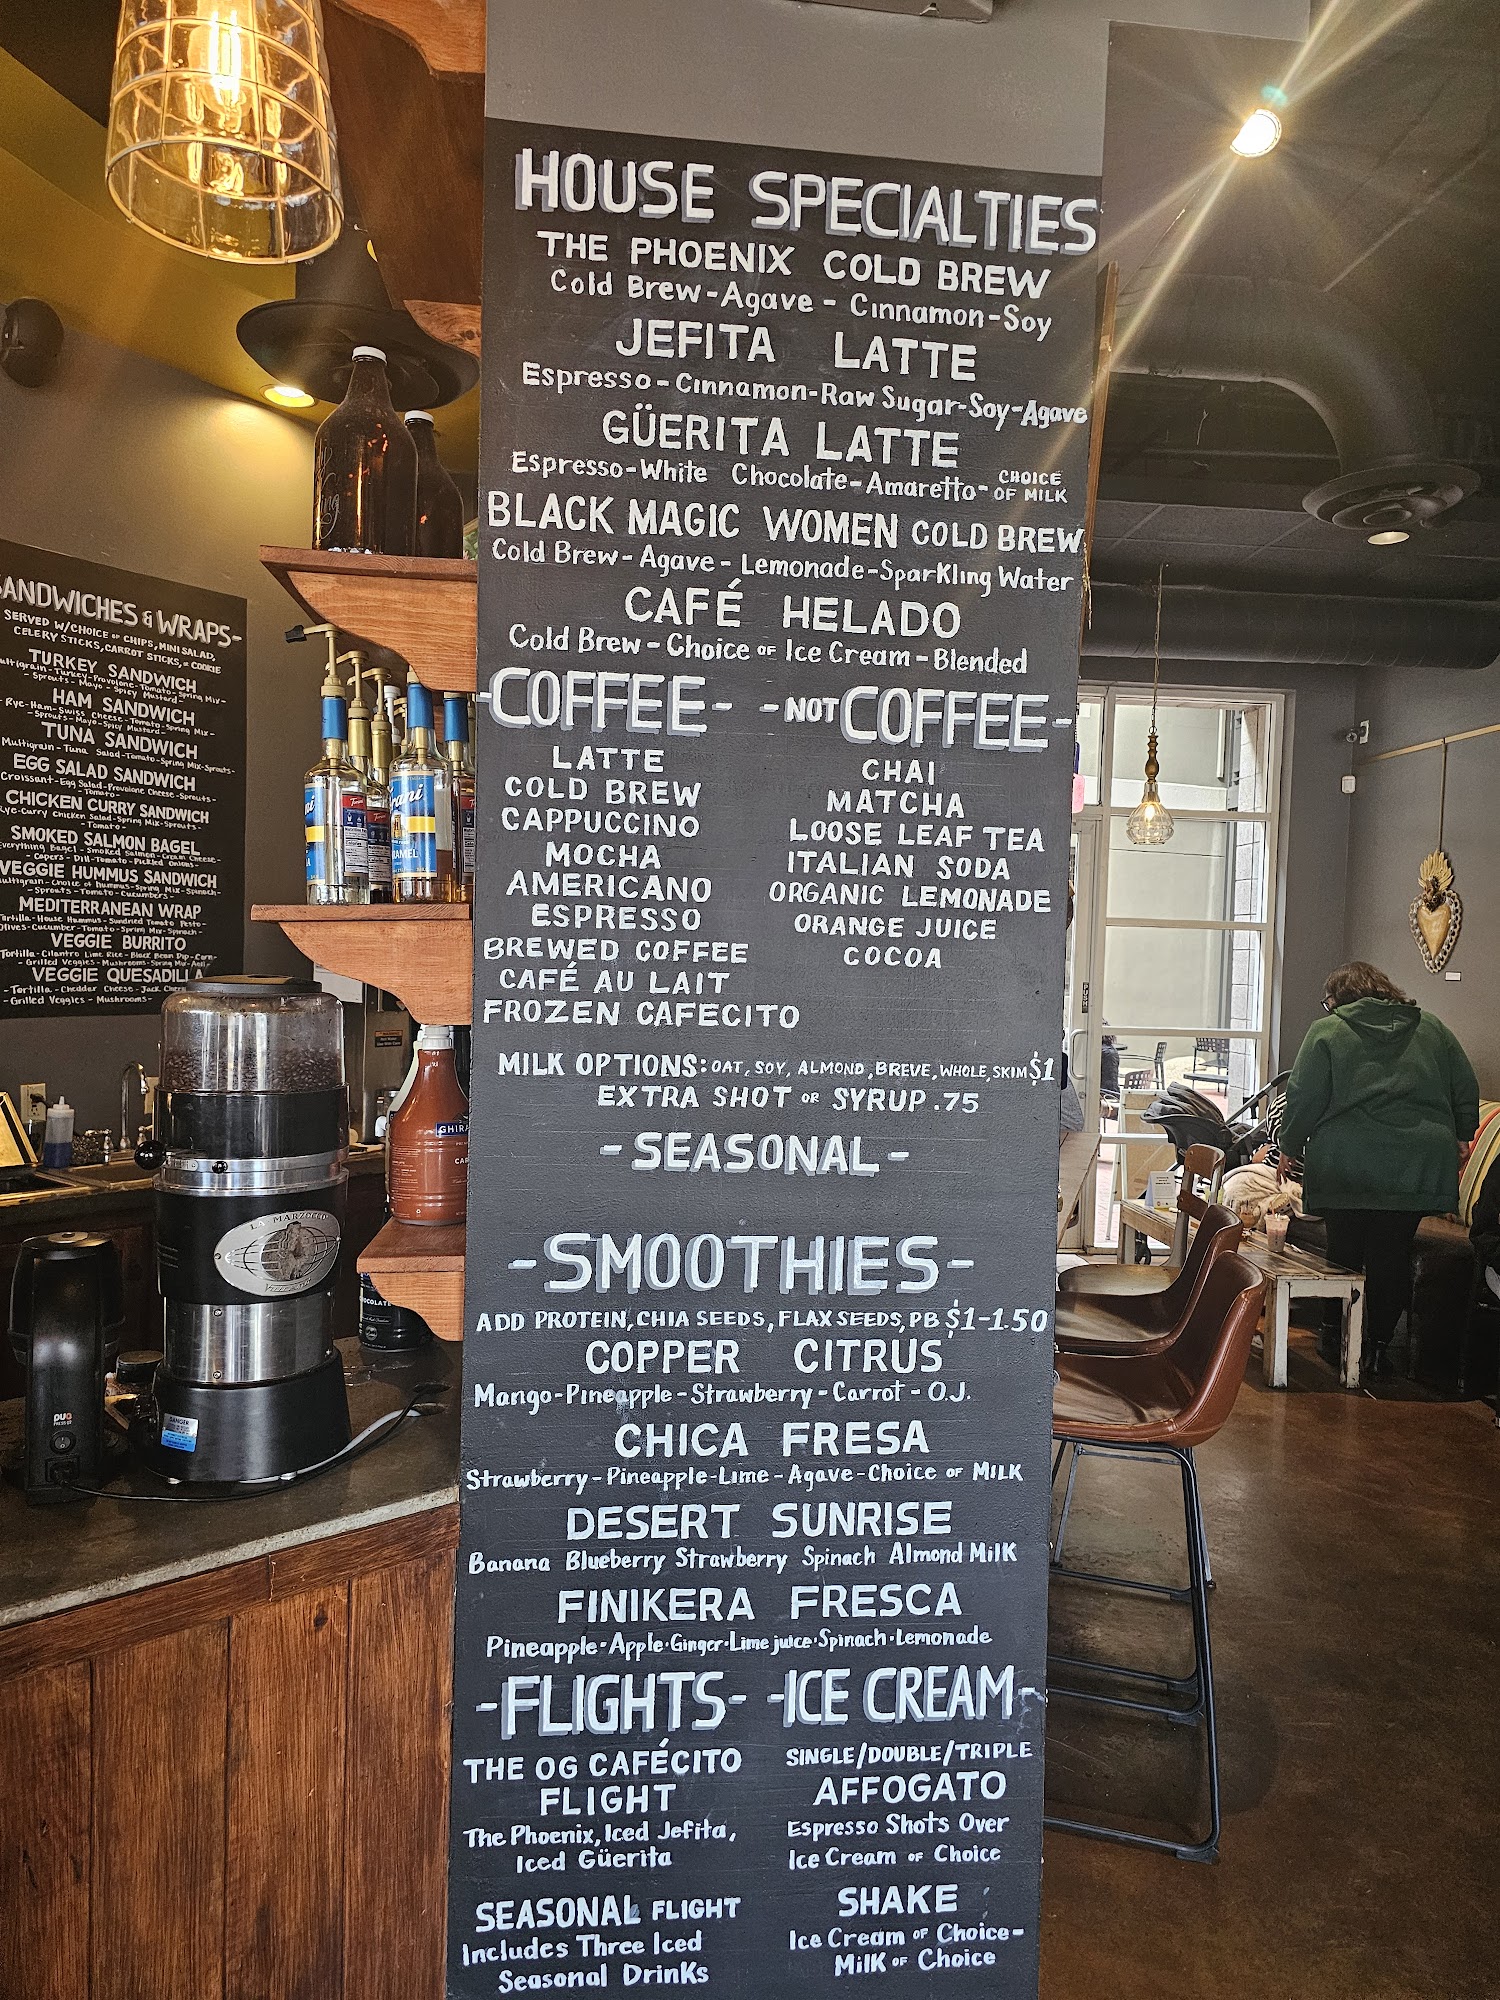 HOUSE SPECIALTIES
THE PHOENIX COLD BREW
Cold Brew-Agave - Cinnamon-Soy
JEFITA LATTE
Espresso-Cinnamon-Raw Sugar-Soy-Agave
GÜERITA LATTE
Espresso-White Chocolate-Amaretto- CHOICE OF MILK
BLACK MAGIC WOMEN COLD BREW
Cold Brew- Agave - Lemonade-Sparkling Water
CAFÉ HELADO
Cold Brew - Choice OF Ice Cream - Blended
-COFFEE-
LATTE
COLD BREW
CAPPUCCINO
MOCHA
AMERICANO
ESPRESSO
BREWED COFFEE
CAFÉ AU LAIT
FROZEN CAFECITO
-NOT COFFEE-
CHAI
MATCHA
LOOSE LEAF TEA
ITALIAN SODA
ORGANIC LEMONADE
ORANGE JUICE
COCOA
MILK OPTIONS: OAT, SOY, ALMOND, BREVE, WHOLE, SKIM $1
EXTRA SHOT OR SYRUP .75
-SEASONAL-
-SMOOTHIES-
ADD PROTEIN, CHIA SEEDS, FLAX SEEDS, PB $1-1.50
COPPER CITRUS
Mango-Pineapple-Strawberry-Carrot- O.J.
CHICA FRESA
Strawberry-Pineapple-Lime-Agave-Choice OF MILK
DESERT SUNRISE
Banana Blueberry Strawberry Spinach Almond Milk
FINIKERA FRESCA
Pineapple·Apple·Ginger·Lime juice·Spinach·Lemonade
-FLIGHTS-
THE OG CAFÉCITO
FLIGHT
The Phoenix, Iced Jefita,
Iced Güerita
SEASONAL FLIGHT
Includes Three Iced
Seasonal Drinks
-ICE CREAM-
SINGLE/DOUBLE/TRIPLE
AFFOGATO
Espresso Shots Over
Ice Cream OF Choice
SHAKE
Ice Cream OF Choice-
Milk OF Choice
SANDWICHES & WRAPS-
SERVED W/CHOICE OF CHIPS, MINI SALAD,
CELERY STICKS, CARROT STICKS, COOKIE
TURKEY SANDWICH
Turkey-Provolone-Tomato-Spring Mix-
- Sprouts - Mayo - Spicy Mustard-
HAM SANDWICH
- Rye-Ham-Swiss Cheese-Tomato-Spring Mix-
- Sprouts-Mayo-Spicy Mustard-
TUNA SANDWICH
Multigrain- Tuna Salad-Tomato-Spring Mix-Sprouts-
EGG SALAD SANDWICH
Croissant-Egg Salad-Provolone Cheese-Sprouts-
- Tomato -
CHICKEN CURRY SANDWICH
Rye-Curry Chicken Salad-Spring Mix-Sprouts-
- Tomato -
SMOKED SALMON BAGEL
Everything Bagel - Smoked Salmon-Cream Cheese-
- Capers - Dill-Tomato-Pickled Onions-
VEGGIE HUMMUS SANDWICH
Choice of Hummus-Spring Mix-Spinach-
- Sprouts - Tomato - Cucumbers -
MEDITERRANEAN WRAP
Tortilla-House Hummus-Sundried Tomato Pesto-
Olives-Cucumber-Tomato-Spring Mix-Spinach-
VEGGIE BURRITO
Tortilla-Cilantro Lime Rice-Black Bean Dip-Corn-
- Grilled Veggies - Mushrooms-Spring Mix-
VEGGIE QUESADILLA
- Tortilla - Cheddar Cheese-Jack
- Grilled Veggies - Mushrooms-
LA MARZOCCO
DANGER
DUO
GHIRA